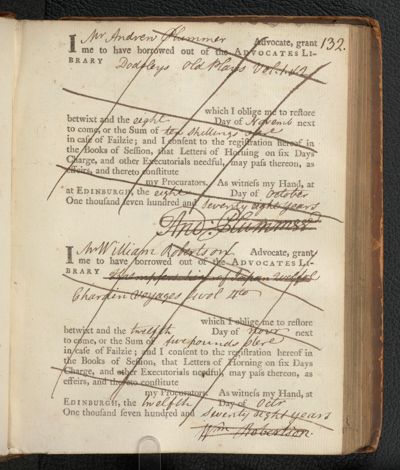 132.
I Mr Andrew Plummer Advocate, grant
me to have borrowed out of the ADVOCATES LI-
BRARY Dodsleys Old Plays Vol. 1. & 2
which I oblige me to reſtore
betwixt and the eight Day of Novemb next
to come, or the Sum of ten Shillings
in caſe of Failzie; and I conſent to the regiſtration hereof in
the Books of Seſſion, that Letters of Horning on ſix Days
Charge, and other Executorials needful, may paſs thereon, as
effeirs, and thereto conſtitute
my Procurators. As witneſs my Hand, at
at EDINBURGH, the eighth Day of October
One thouſand ſeven hundred and Seventy eight years
And: Plummer
I Mr William Robertson Advocate, grant
me to have borrowed out of the ADVOCATES LI-
BRARY
Chardin Voyages 4to
which I oblige me to reſtore
betwixt and the twelfth Day of Novr next
to come, or the Sum of two pounds
in caſe of Failzie; and I conſent to the regiſtration hereof in
the Books of Seſſion, that Letters of Horning on ſix Days
Charge, and other Executorials needful, may paſs thereon, as
effeirs, and thereto conſtitute
my Procurators. As witneſs my Hand, at
EDINBURGH, the twelfth Day of Octr
One thouſand ſeven hundred and Seventy eight years
Wm Robertson.